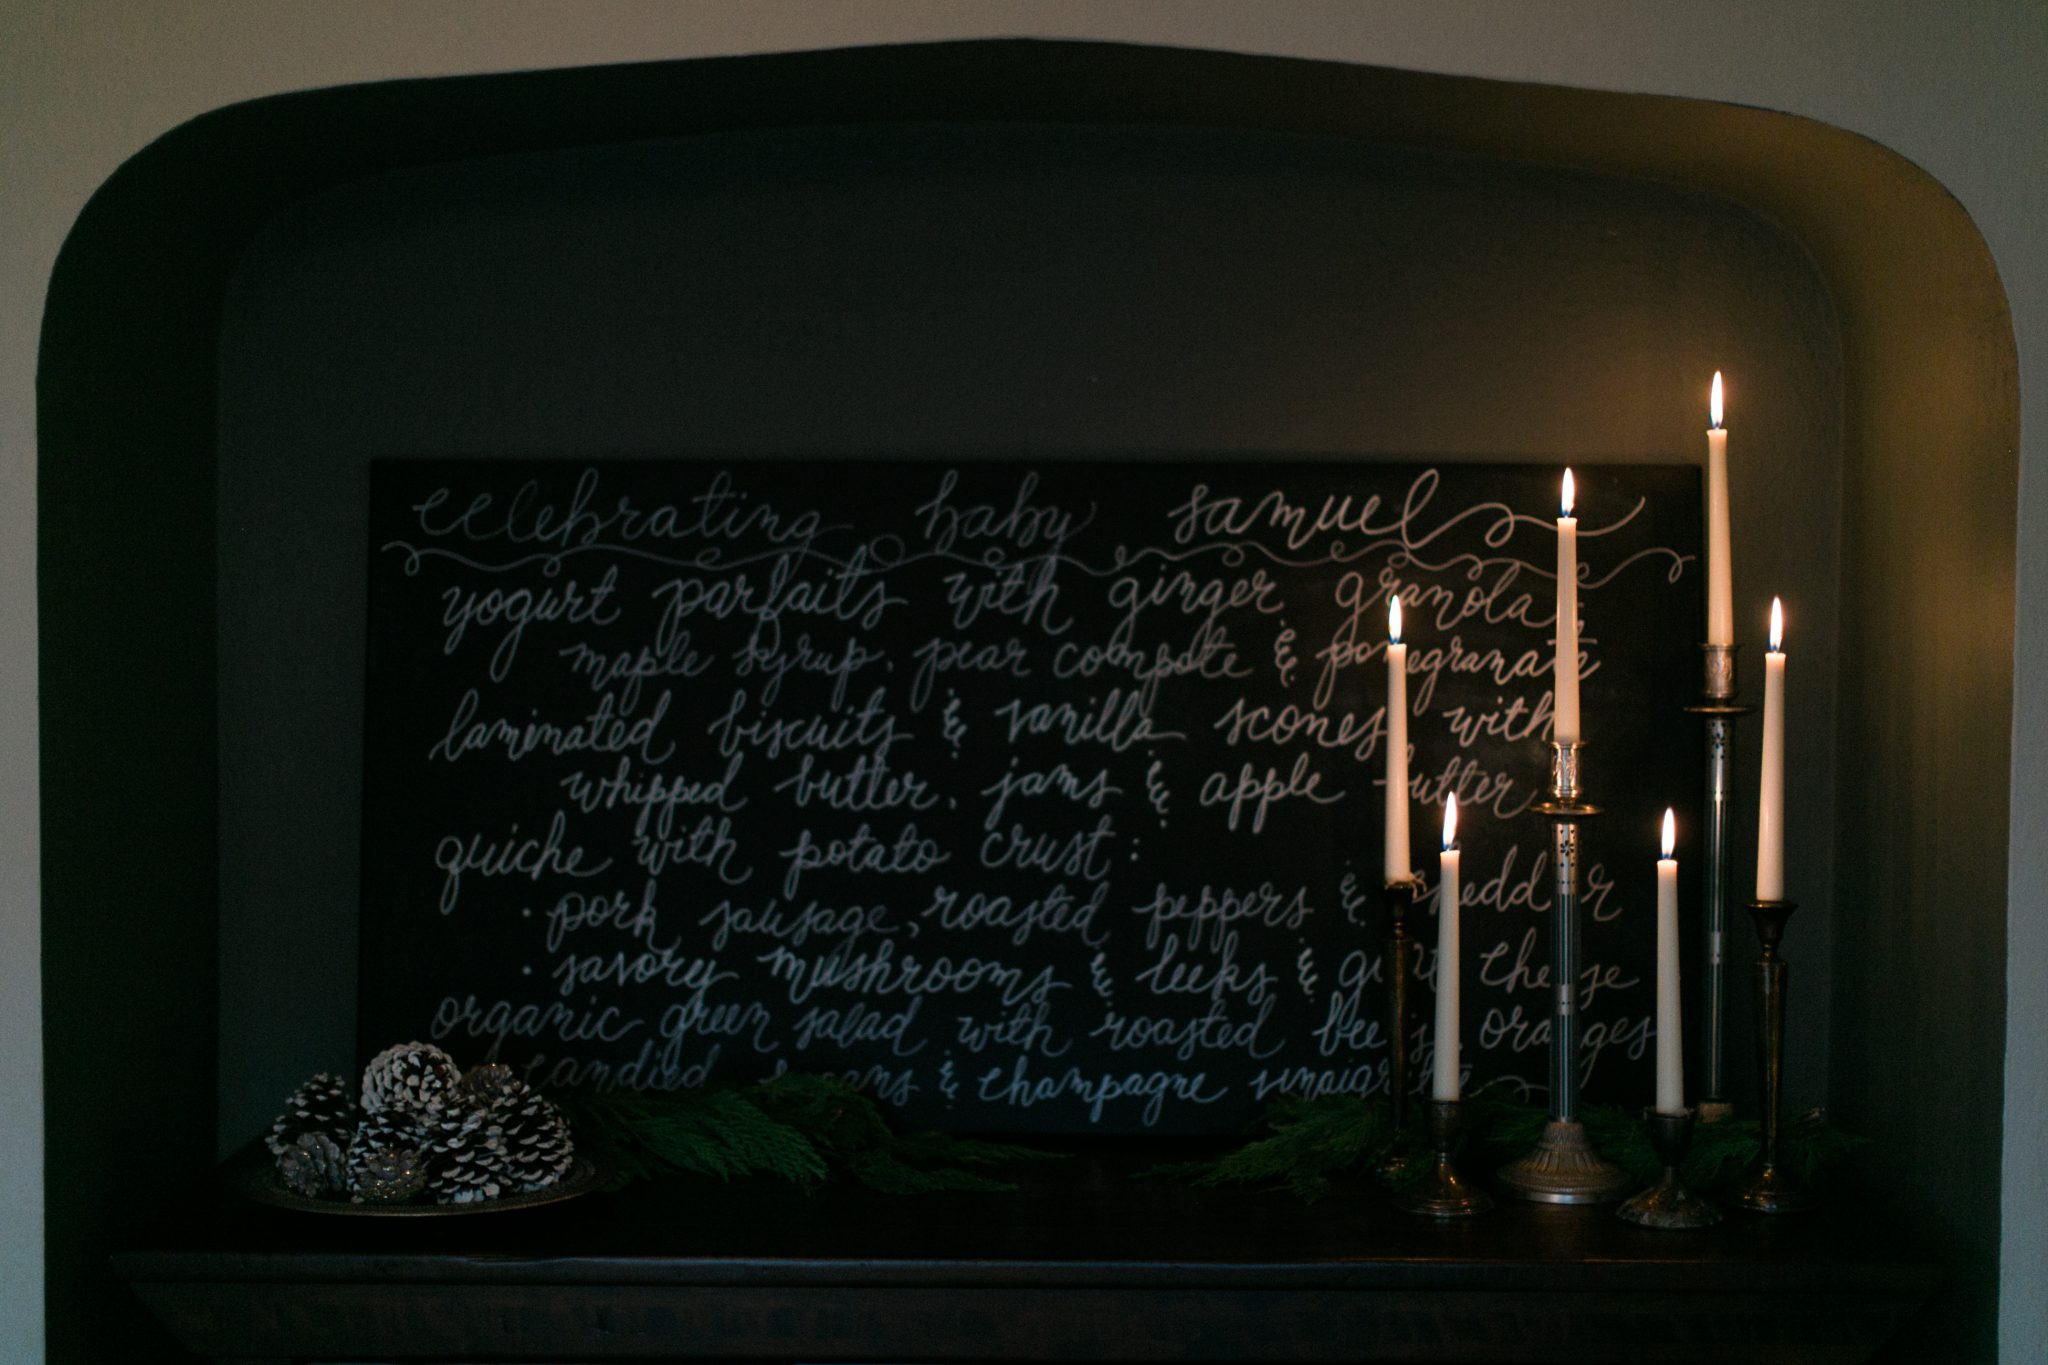 celebrating baby samuel
yogurt parfaits with ginger granola,
maple syrup, pear compote & pomegranate
laminated biscuits & vanilla scones with
whipped butter, jams & apple butter
quiche with potato crust:
· pork sausage, roasted peppers & cheddar
· savory mushrooms & leeks & goat cheese
organic green salad with roasted beets, oranges
candied pecans & champagne vinaigrette